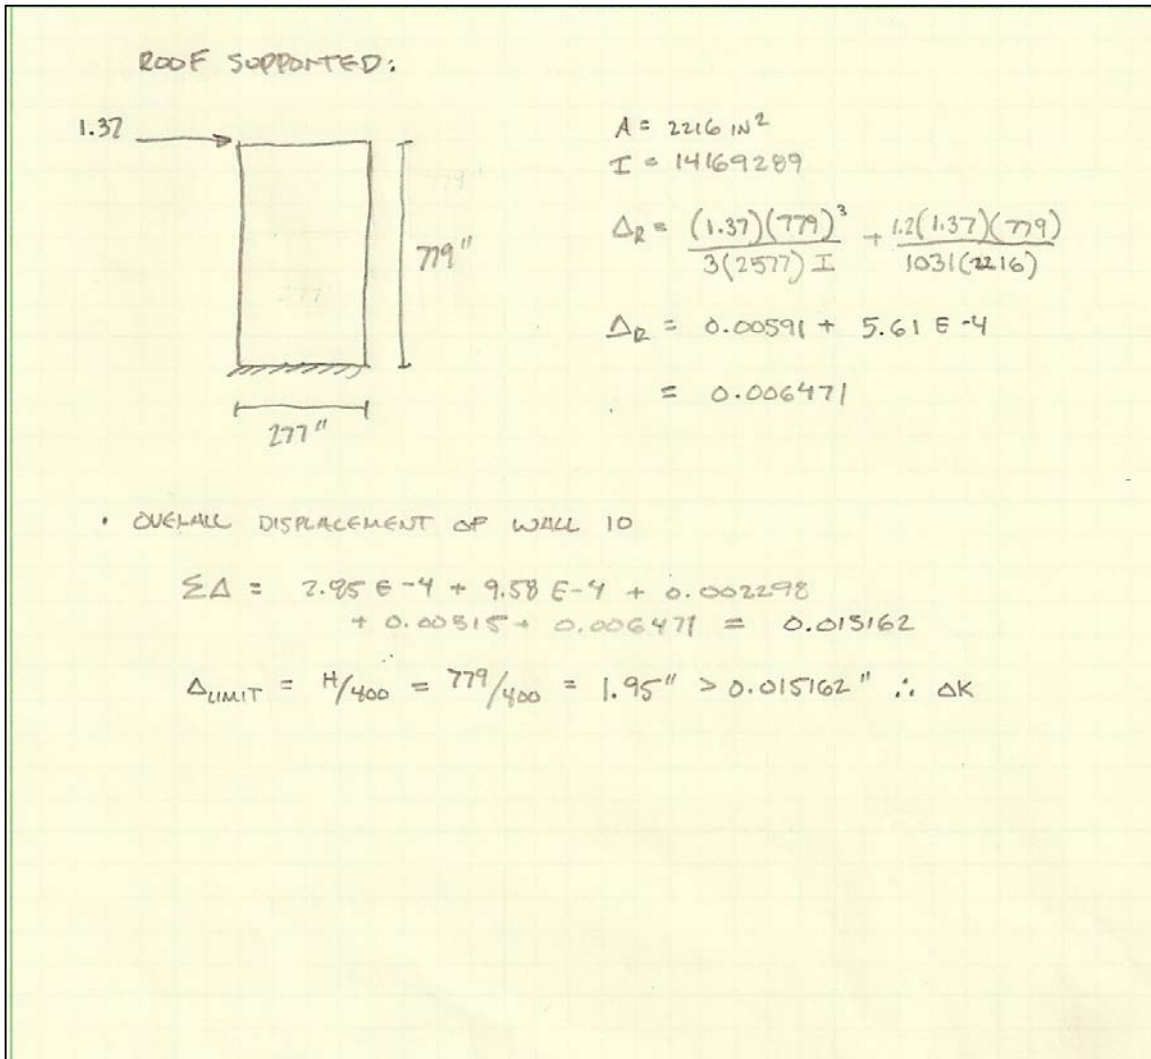 ROOF SUPPORTED:
1.37
779"
277"
A = 2216 IN²
I = 14169289
Δ_R = (1.37)(779)³ / 3(2577) I + 1.2(1.37)(779) / 1031(2216)
Δ_R = 0.00591 + 5.61 E -4
= 0.006471
• OVERALL DISPLACEMENT OF WALL 10
ΣΔ = 2.85 E -4 + 9.58 E-4 + 0.002298
+ 0.00515 + 0.006471 = 0.015162
Δ_LIMIT = H/400 = 779/400 = 1.95" > 0.015162" ∴ OK